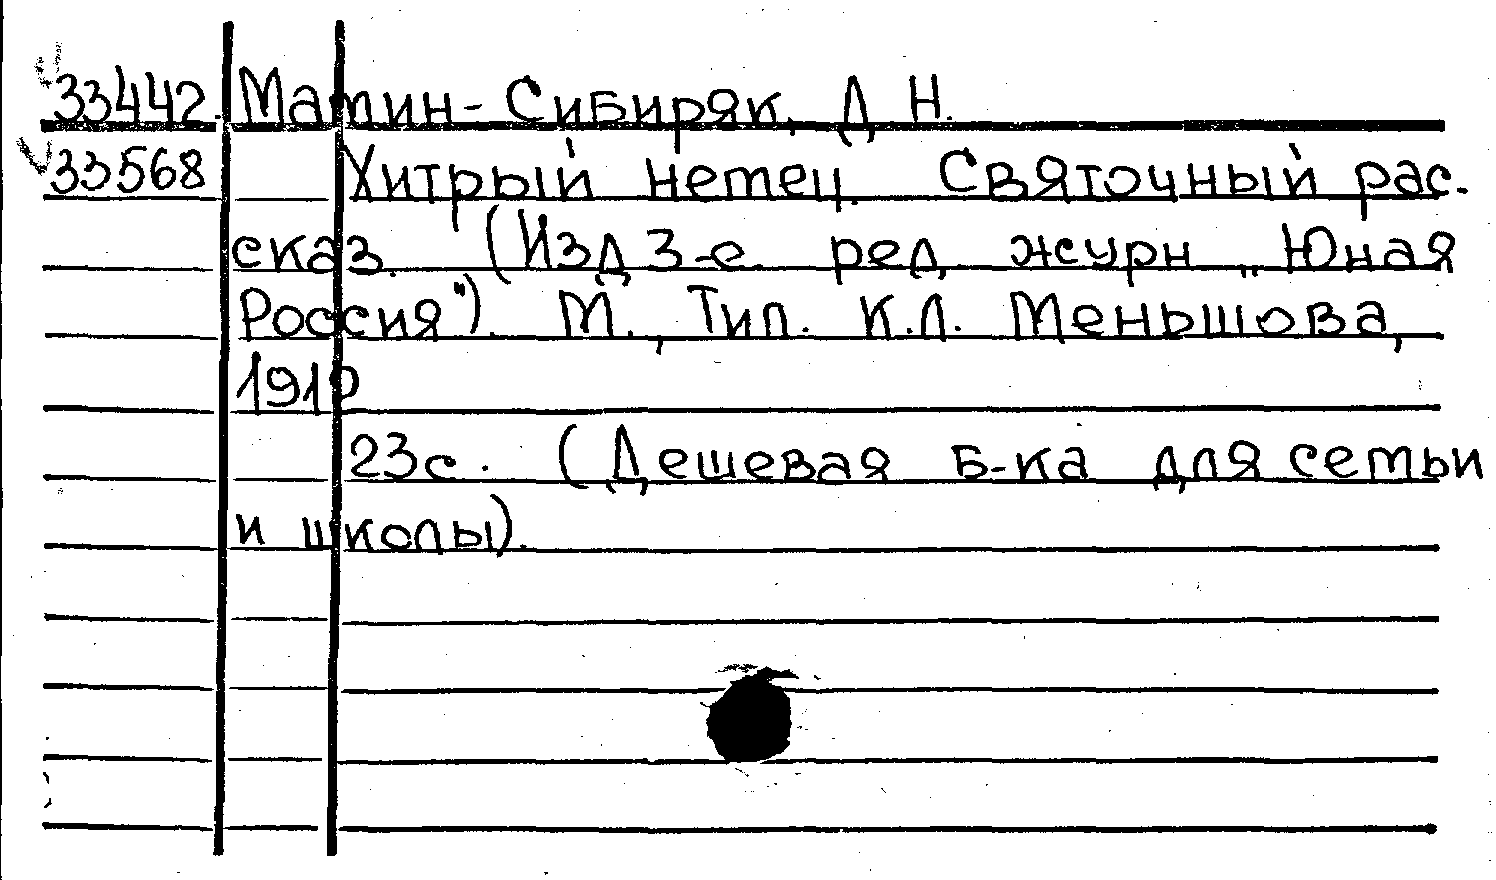 33442. Мамин-Сибиряк, Д. Н.
33568 Хитрый немец. Святочный рас-
сказ. (Изд. 3-е ред. журн. „Юная
Россия"). М., Тип. К.Л. Меньшова,
1910
23с. (Дешевая б-ка для семьи
и школы).